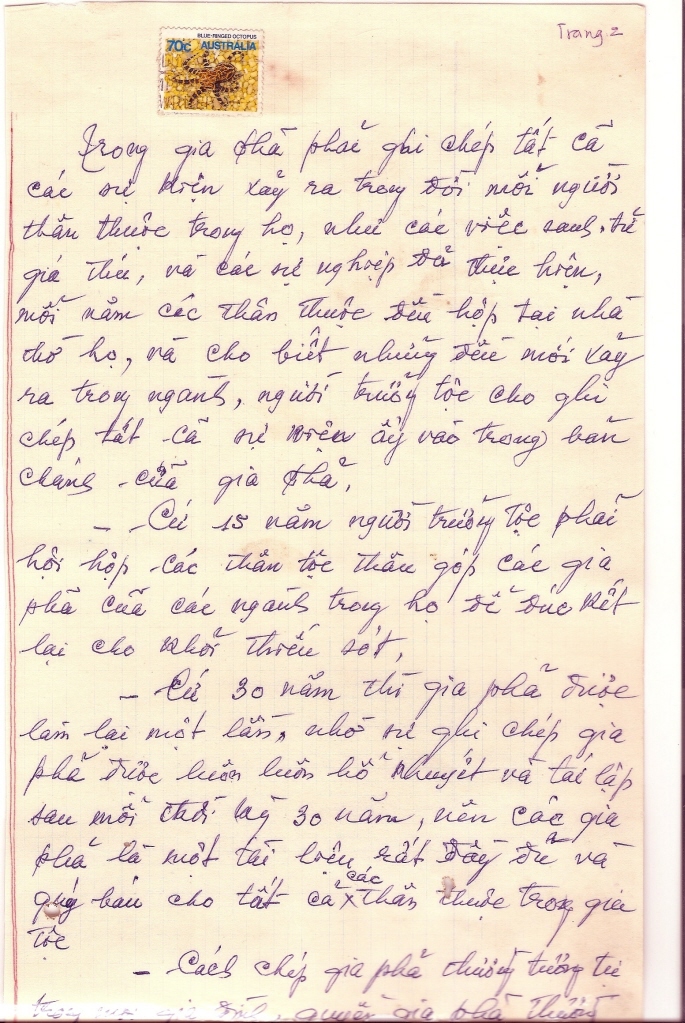 Trang 2
BLUE-RINGED OCTOPUS
70c AUSTRALIA
Trong gia phả phải ghi chép tất cả
các sự kiện xảy ra trong đời mỗi người
thân thuộc trong họ, như các việc sanh, tử
giá thú, và các sự nghiệp đã thực hiện,
mỗi năm các thân thuộc đều họp tại nhà
thờ họ, và cho biết những đều mới xảy
ra trong ngành, người trưởng tộc cho ghi
chép tất cả sự kiện ấy vào trong bản
chánh của gia phả.
- Cứ 15 năm người trưởng tộc phải
hội họp các thân tộc thâu góp các gia
phả của các ngành trong họ để đúc kết
lại cho khỏi thiếu sót,
- Cứ 30 năm thì gia phả được
làm lại một lần, nhờ sự ghi chép gia
phả được luôn luôn bổ khuyết và tái lập
sau mỗi thời kỳ 30 năm, nên các gia
phả là một tài liệu rất đầy đủ và
quý báu cho tất cả các thân thuộc trong gia
tộc
- Cách chép gia phả thường tương tự
trong mọi gia đình, quyển gia phả thường